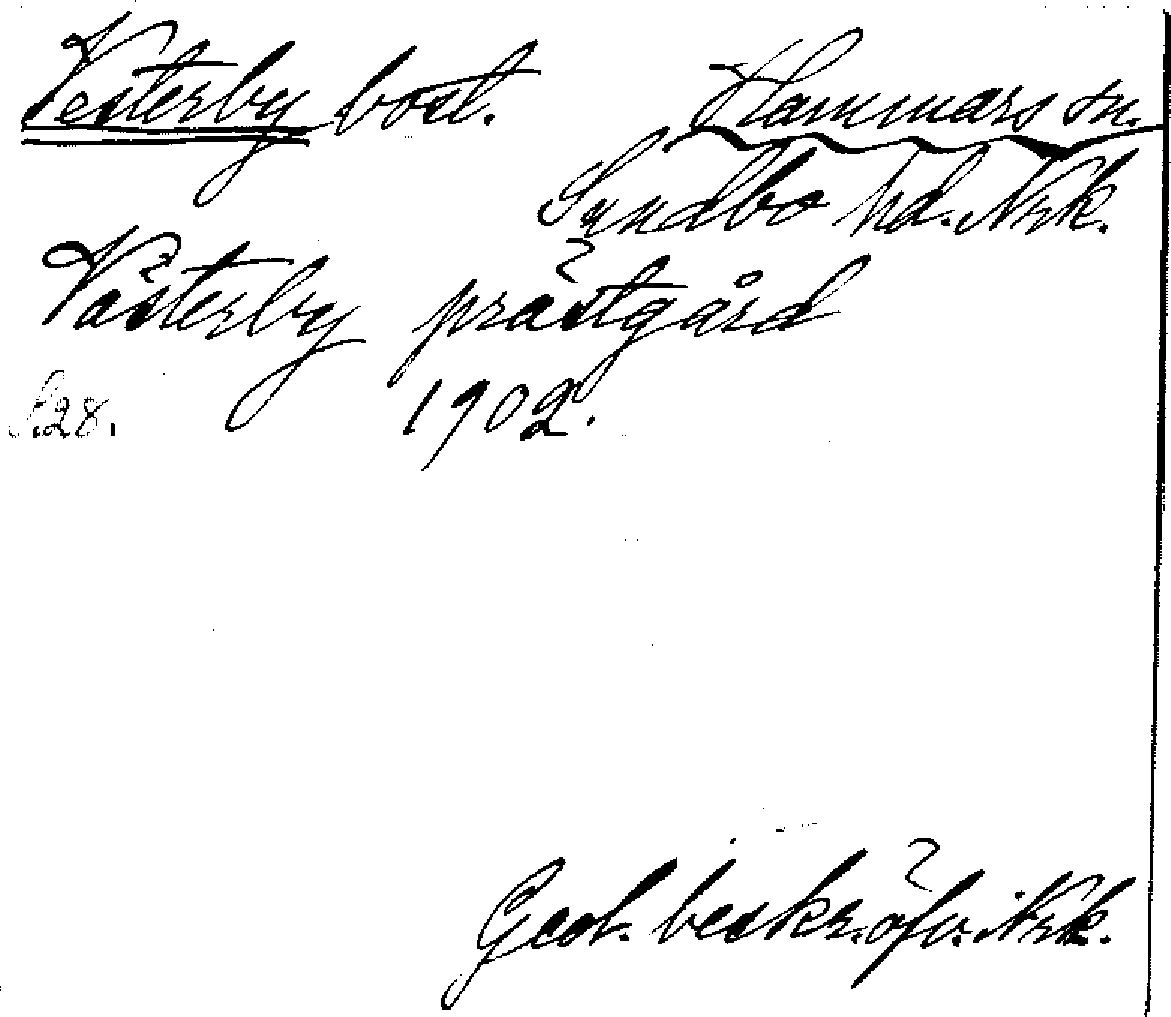 Vesterby bost. Hammars sn.
Sundbo hd. Nrk.
Västerby prästgård
S. 28. 1902.
Geol. beskr. öfv. Nrk.